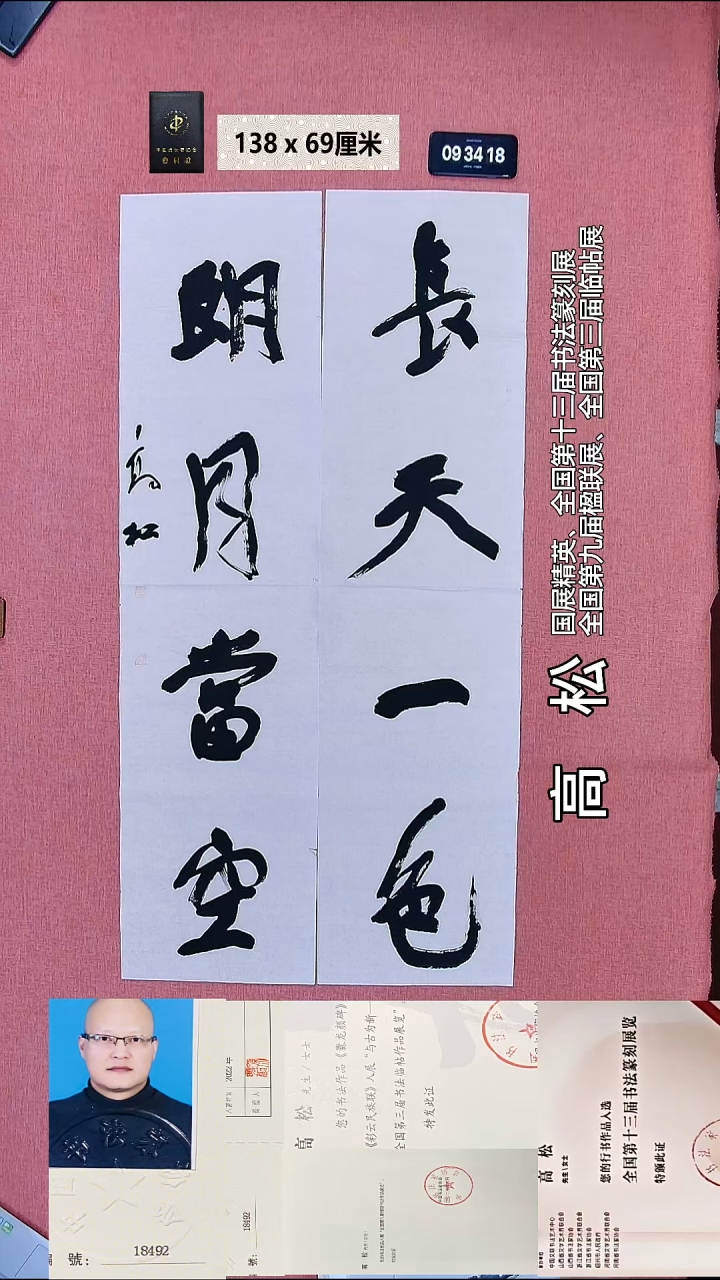 138 x 69厘米
09 34 18
長天一色
明月當空
高松
国展精英、全国第十三届书法篆刻展
全国第九届楹联展、全国第三届临帖展
高 松
號：
18492
2022 年
高 松 先生 / 女士
您的书法作品《爨龙颜碑》
《彩云民族联》入展“与古为新——
全国第三届书法临帖作品展览”
特发此证
號：
18492
高 松
先生\女士
您的行书作品入选
全国第十三届书法篆刻展览
特颁此证